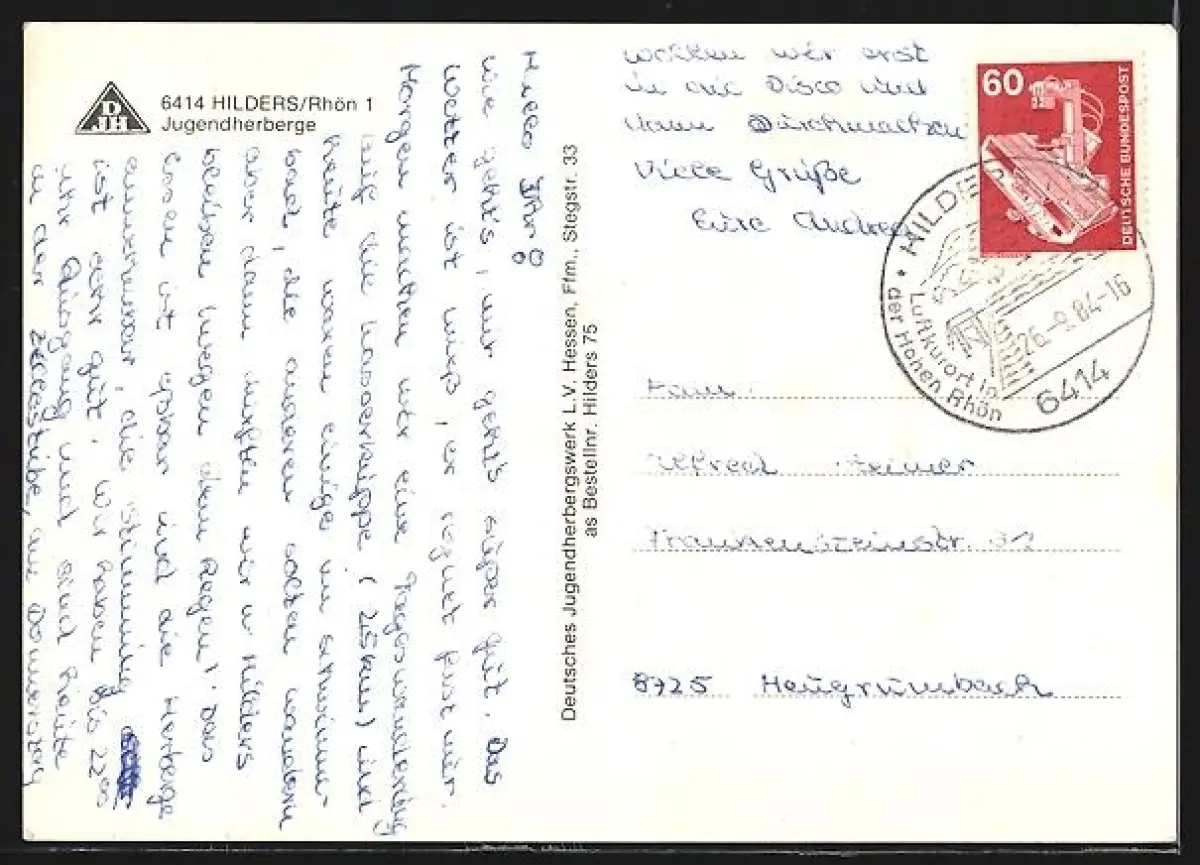 D
JH
6414 HILDERS/Rhön 1
Jugendherberge
Hallo Ihr!
Wie geht's, mir geht's super gut. Das
Wetter ist mieß, er regnet fast nur.
Morgen machen wir eine Tageswanderung
auf die Wasserkuppe (25km) und
heute waren einige im schwimm-
bad, die anderen sollten wandern
aber dann durften wir in Hilders
bleiben wegen dem Regen! Das
Essen ist eßbar und die Herberge
annehmbar, die Stimmung
ist sehr gut. Wir haben bis 22⁰⁰
Uhr Ausgang und sind heute
in der Zehntstube, am Donnerstag
wollen wir erst
in die Disco und
dann Durchmachen
Viele Grüße
Eure Andrea
Deutsches Jugendherbergswerk L.V. Hessen, Ffm., Stegstr. 33
as Bestellnr. Hilders 75
60
DEUTSCHE BUNDESPOST
HILDERS
Luftkurort in
der Hohen Rhön
26.-9.84-16
6414
Fam.
Alfred
8725 Heugrumbach